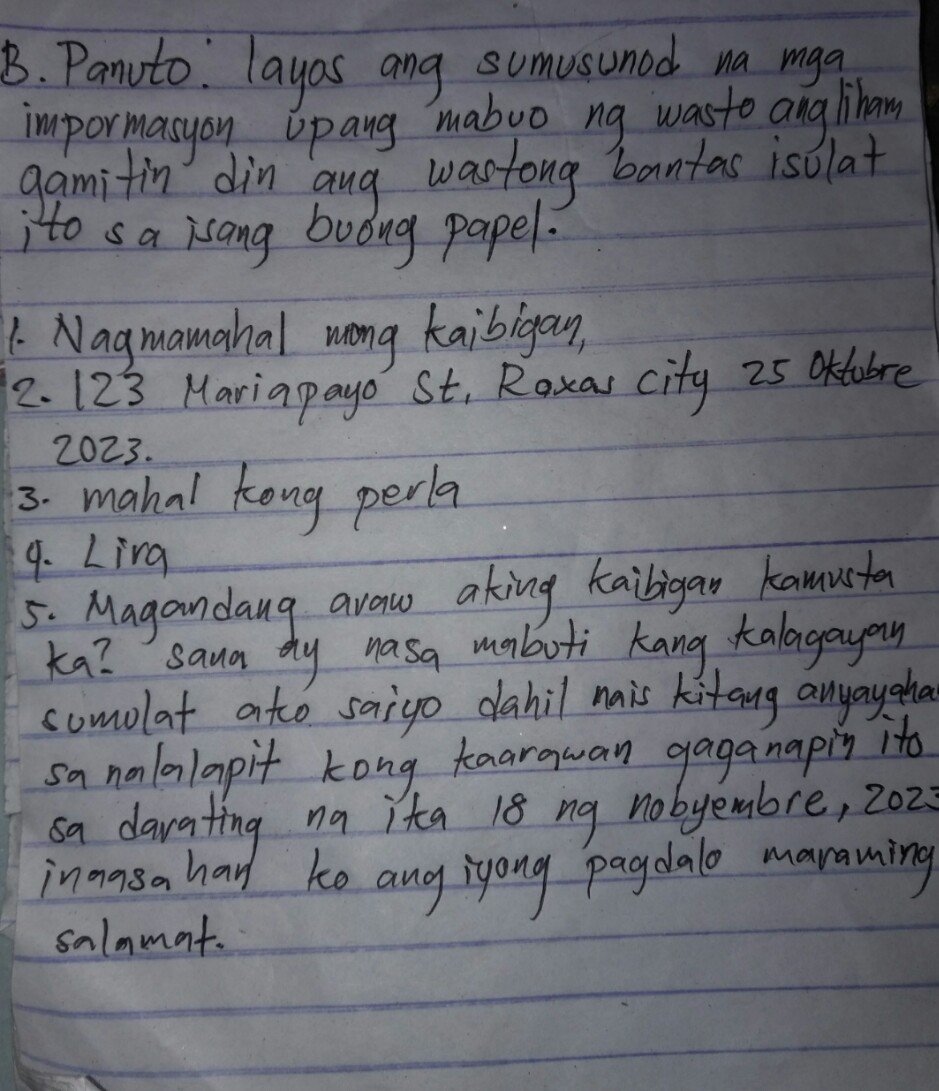 B. Panuto: layos ang sumusunod na mga
impormasyon upang mabuo ng wasto ang liham
gamitin din ang wastong bantas isulat
ito sa isang buong papel.
1. Nagmamahal mong kaibigan,
2. 123 Mariapayo St, Roxas city 25 Oktubre
2023.
3. mahal kong perla
4. Lira
5. Magandang araw aking kaibigan kamusta
ka? sana ay nasa mabuti kang kalagayan
sumulat ako saiyo dahil nais kitang anyayaha
sa nalalapit kong kaarawan gaganapin ito
sa darating na ika 18 ng nobyembre, 2023
inaasahan ko ang iyong pagdalo maraming
salamat.